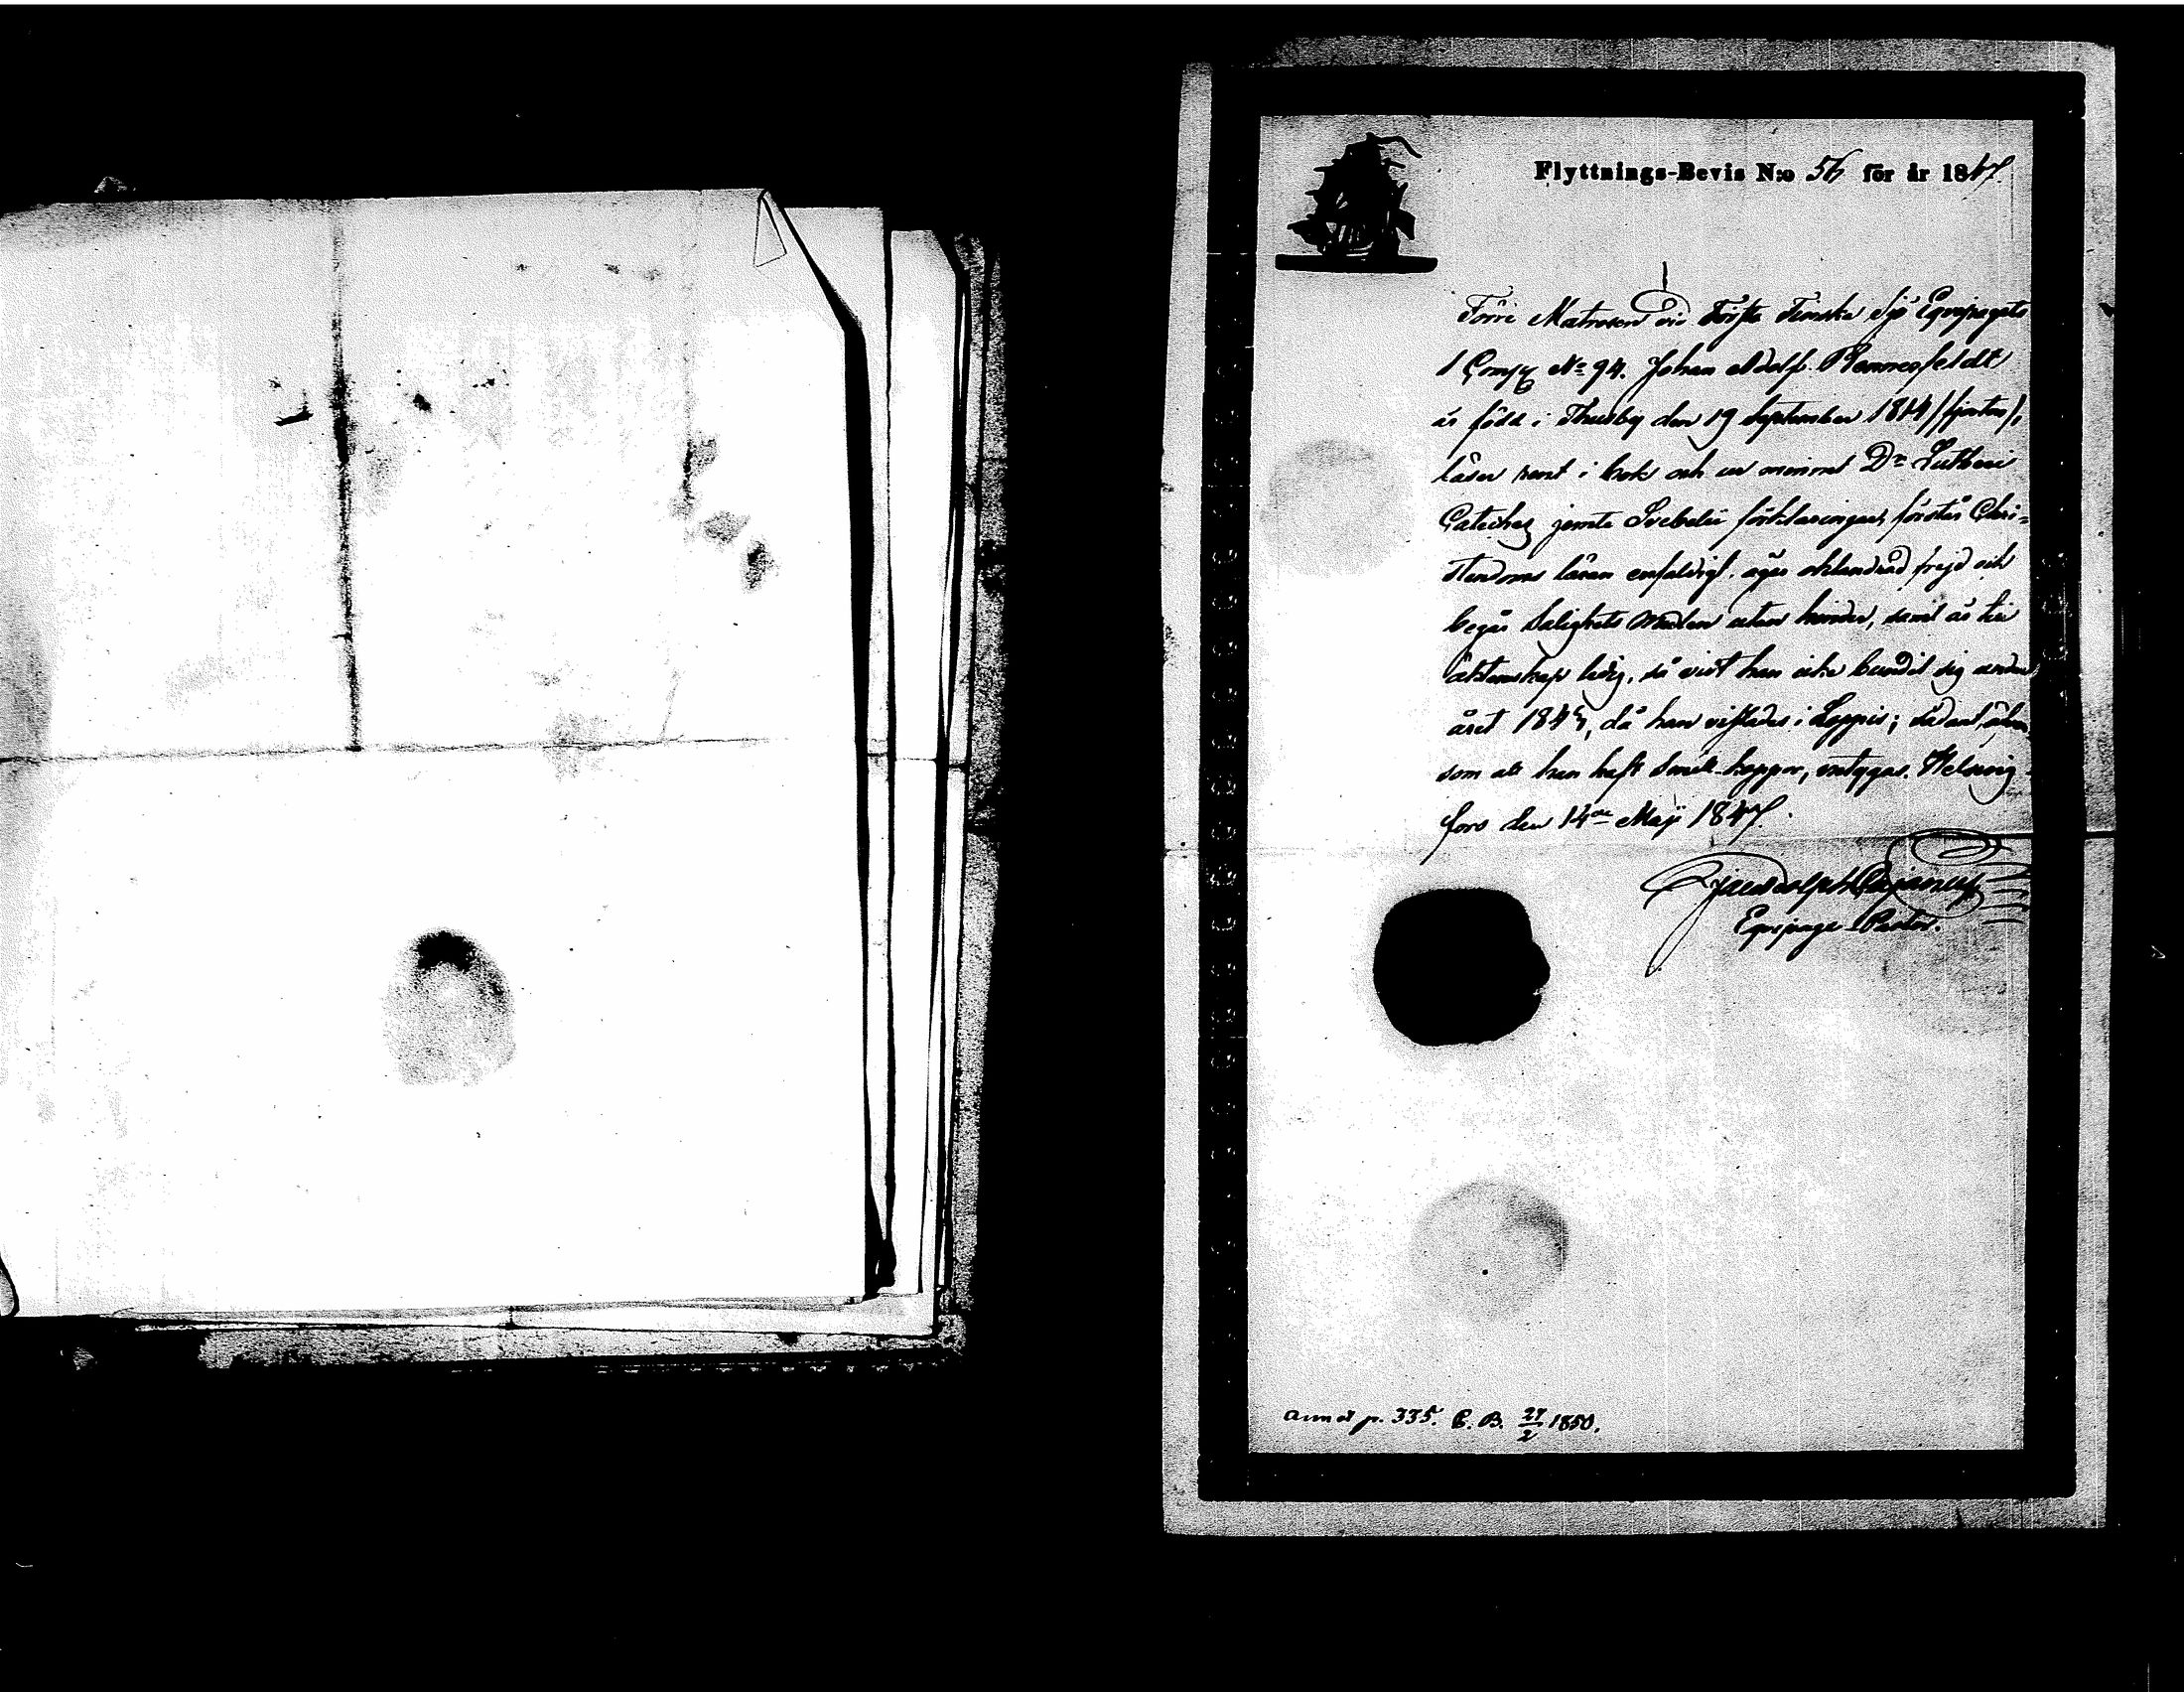 Flyttnings-Bevis N:o 56 för år 1847.
Förre Matrosen vid Första Finska Sjö Equipagets
1 Comp N° 94. Johan Adolf
är född i Thusby den 19 September 1814 /fjorton/,
läser rent i bok och ur minnet Dr Lutheri
Cateches jemte Svebelii förklaringar, förstår Chri-
stendoms läran enfaldigt, äger oklandrad frejd och
begår Salighets Medlen utan hinder, samt är till
äktenskap ledig, så vist han icke bundit sig under
året 1845, då han vistades i Loppis; sådant äfven
som att han haft Smitt-koppor, intygas. Helsing-
fors den 14de Maji 1847.
Cajanus
Equipage-Pastor.
annot p. 335. C. B. 27/2 1850.